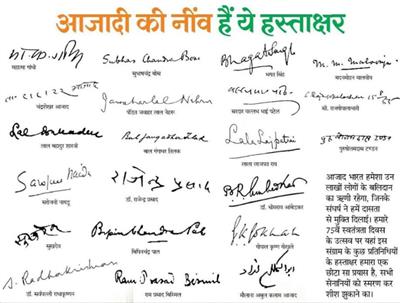 आजादी की नींव हैं ये हस्ताक्षर
Subhas Chandra Bose
Bhagat Singh
महात्मा गांधी
सुभाषचंद्र बोस
भगत सिंह
मदनमोहन मालवीय
Jawaharlal Nehru
चंद्रशेखर आजाद
पंडित जवाहर लाल नेहरू
सरदार वल्लभ भाई पटेल
सी. राजगोपालाचारी
Lal Bahadur
Bal Gangadhar Tilak
Lala Lajpat Rai
लाल बहादुर शास्त्री
बाल गंगाधर तिलक
लाला लाजपत राय
पुरुषोत्तमदास टण्डन
Sarojini Naidu
राजेन्द्र प्रसाद
BR Ambedkar
सरोजनी नायडू
डॉ. राजेंद्र प्रसाद
डॉ. भीमराव आंबेडकर
सुखदेव
Bipin Chandra Pal
GK Gokhale
सुखदेव
बिपिनचंद्र पाल
गोपाल कृष्ण गोखले
S. Radhakrishnan
Ram Prasad Bismil
डॉ. सर्वपल्ली राधाकृष्णन
राम प्रसाद बिस्मिल
मौलाना अबुल कलाम आजाद
आजाद भारत हमेशा उन
लाखों लोगों के बलिदान
का ऋणी रहेगा, जिनके
संघर्ष ने हमें दासता
से मुक्ति दिलाई। हमारे
75वें स्वतंत्रता दिवस
के उत्सव पर यहां इस
संग्राम के कुछ प्रतिनिधियों
के हस्ताक्षर हमारा एक
छोटा सा प्रयास है, सभी
सेनानियों को स्मरण कर
शीश झुकाने का।